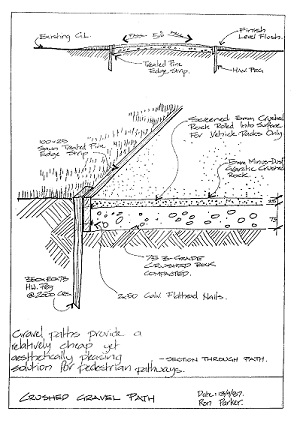 Existing G.L.
Finish
Level Flush.
Treated Pine
Edge Strip.
H.W. Peg
100×25
Sawn Treated Pine
Edge Strip.
Screened 5mm Crushed
Rock Rolled Into Surface
For Vehicle Tracks Only
5mm Minus Dust
Granitic Crushed
Rock.
25
75
75 3rd GRADE
CRUSHED ROCK
COMPACTED.
H.W. Peg
2×50 Galv. Flathead Nails.
Gravel paths provide a
relatively cheap yet
aesthetically pleasing
solution for pedestrian pathways.
- SECTION THROUGH PATH.
CRUSHED GRAVEL PATH
Ron Parker.